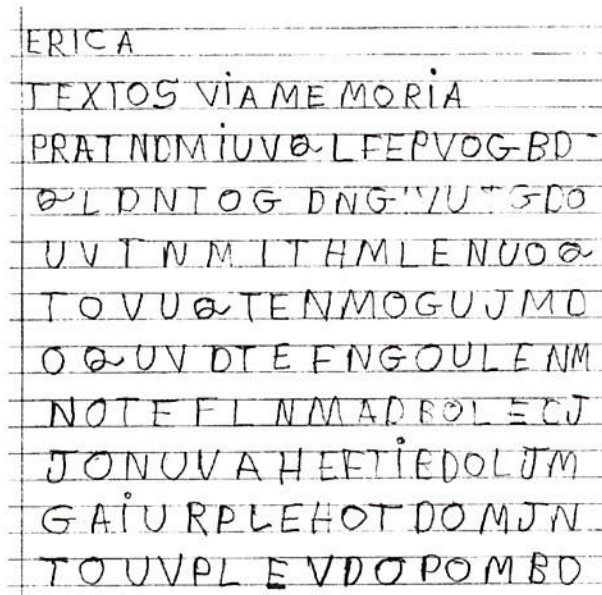 ERICA
TEXTOS VIA MEMORIA
PRATNDMIUVQLFEPVOGBD
QLDNTOG
UVTNMLTHMLENUOQ
TOVUQTENMOGUJMD
OQUVDTEFNGOULENM
NOTEFLNMADBOLECJ
JONUVAHEFTIEDOLJM
GAIURPLEHOTDOMJN
TOUVPLEVDOPOMBD